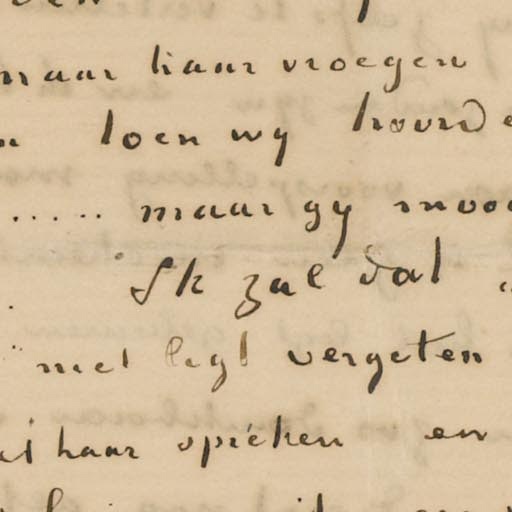 maar haar vroegen
toen wy
..... maar gy
Ik zal dat
niet ligt vergeten
haar spreken en